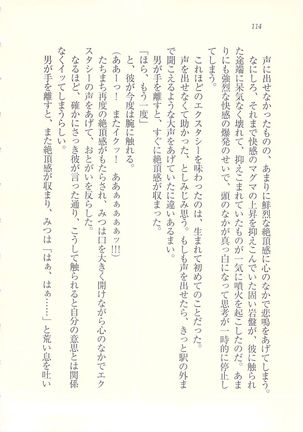 114
声に出せなかったものの、あまりに鮮烈な絶頂感に心のなかで悲鳴をあげてしまう。
なにしろ、それまで快感のマグマの上昇を抑えこんでいた固い岩盤が、彼に触られ
た途端に呆気なく壊れて、抑えこまれていたものが一気に噴火を起こしたのだ。あま
りにも強烈な快感の爆発のせいで、頭のなかが真っ白になって思考が一時的に停止し
てしまう。
これほどのエクスタシーを味わったのは、生まれて初めてのことだった。
声を出せなくて助かった、としみじみ思う。もしも声を出せたら、きっと駅の外ま
で聞こえるような大声をあげていたに違いあるまい。
男が手を離すと、すぐに絶頂感が収まる。
「ほら、もう一度」
と、彼が今度は腕に触れる。
（ああーっ！　またイクッ！　ああぁぁぁぁぁッ!!!）
たちまち再度の絶頂感がもたらされ、みつは口を大きく開けながら心のなかでエク
スタシーの声をあげて、おとがいを反らした。
なるほど、確かにさっき彼が言った通り、こうして触られると自分の意思とは関係
なくイッてしまうらしい。
男が手を離すと、また絶頂感が収まり、みつは「はぁ、はぁ……」と荒い息を吐い